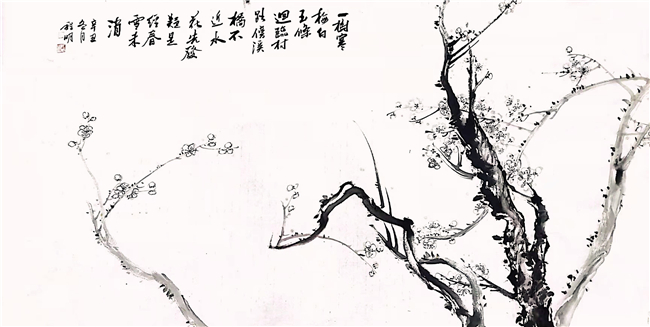 一樹寒
梅白
玉條
迴臨村
路傍溪
橋不
近水
花先發
疑是
經春
雪未
消
辛丑
冬月
明